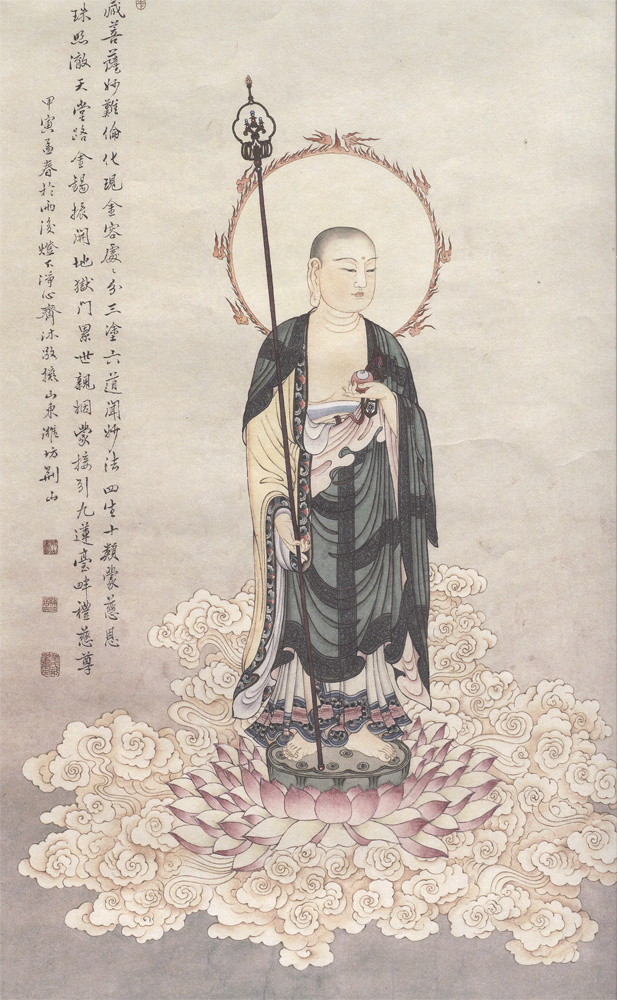 藏菩薩妙難倫化現金容處〻分三塗六道聞妙法四生十類蒙慈恩
珠照澈天堂路金錫振開地獄門累世親姻蒙接引九蓮臺畔禮慈尊
甲寅孟春於雨後燈下淨心齋沐敬擬山東濰坊荊山